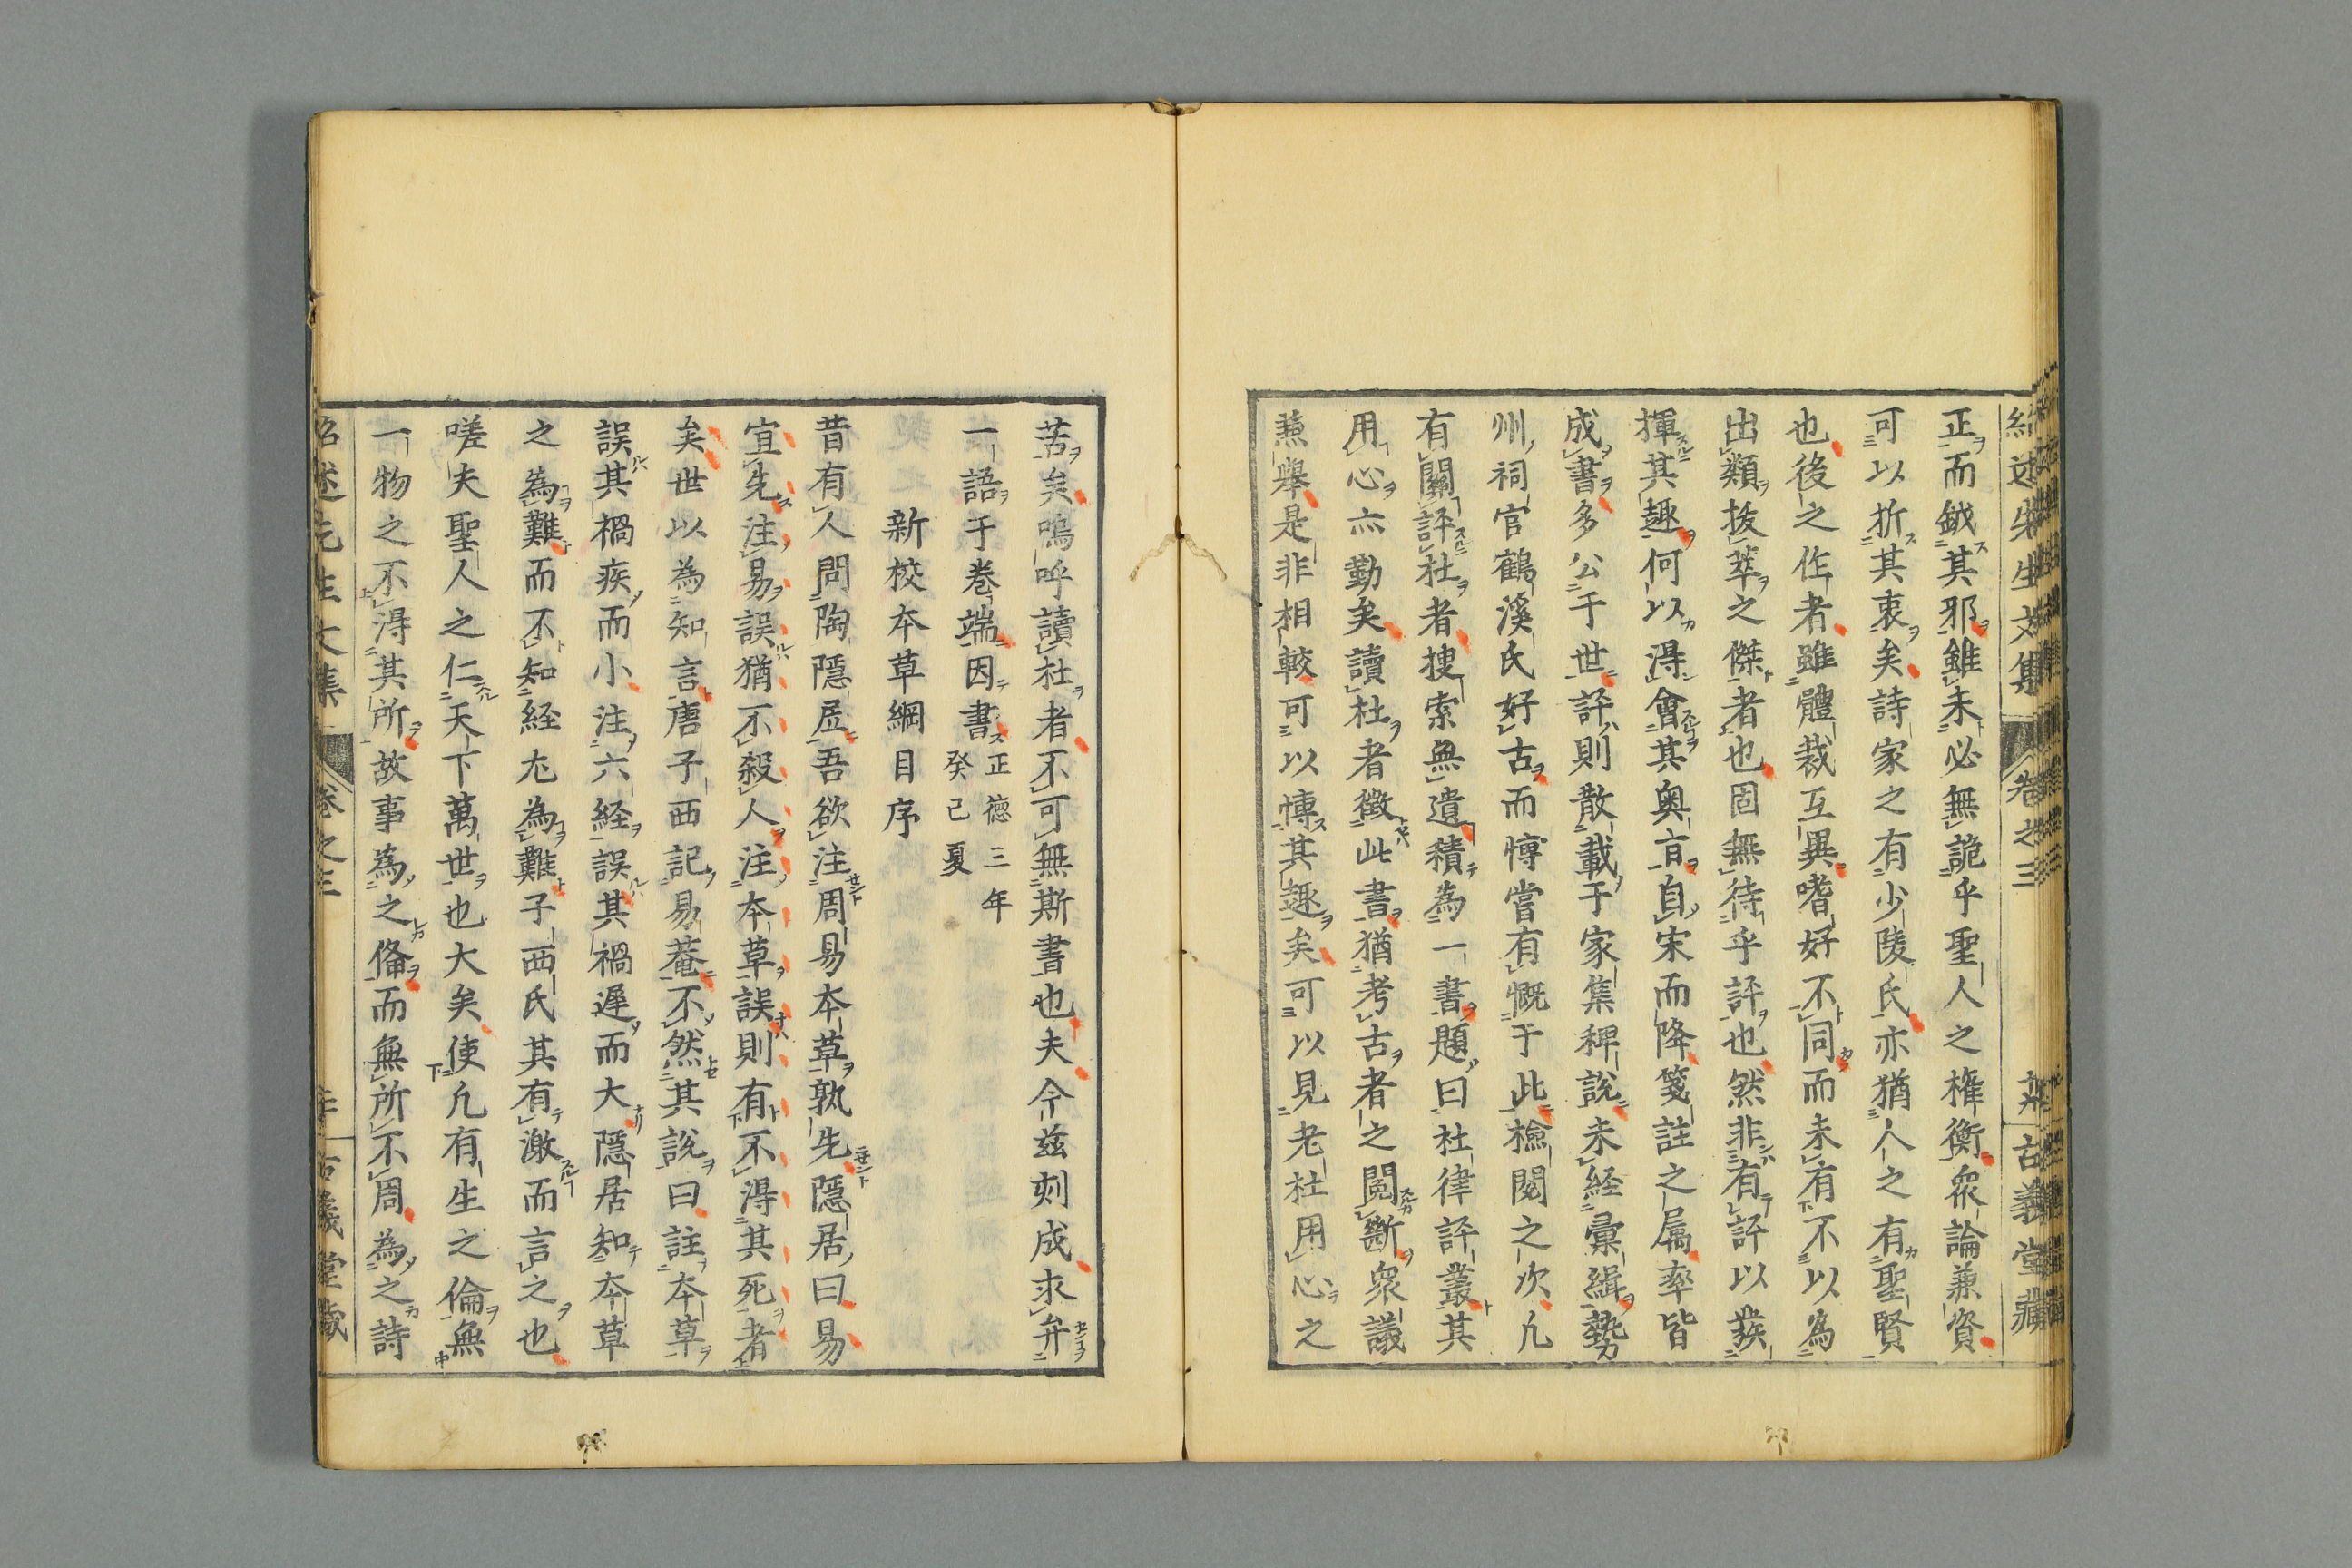 紹述先生文集 卷之三 古義堂藏
正而鉞其邪雖未必無詭乎聖人之權衡衆論兼資
可以折其衷矣詩家之有少陵氏亦猶人之有聖賢
也後之作者雖體裁互異嗜好不同而未有不以爲
出類拔萃之傑者也固無待乎評也然非有評以發
揮其趣何以得會其奧言自宋而降箋註之属率皆
成書多公于世評則散載于家集稗說未経彙緝勢
州祠官鶴溪氏好古而愽嘗有慨于此檢閱之次凢
有關評杜者搜索無遺積為一書題曰杜律評叢其
用心亦勤矣讀杜者徵此書猶考古者之閱斷衆議
兼舉是非相較可以愽其趣矣可以見老杜用心之
苦矣嗚呼讀杜者不可無斯書也夫今兹刻成求弁
一語于卷端因書正德三年
癸巳夏
新校本草綱目序
昔有人問陶隱居吾欲注周易本草孰先隱居曰易
宜先注易誤猶不殺人注本草誤則有不得其死者
矣世以為知言唐子西記易菴不然其說曰註本草
誤其禍疾而小注六経誤其禍遲而大隱居知本草
之為難而不知経尢為難子西氏其有激而言之也
嗟夫聖人之仁天下萬世也大矣使凢有生之倫無
一物之不得其所故事為之俻而無所不周為之詩
紹述先生文集 卷之三 古義堂藏